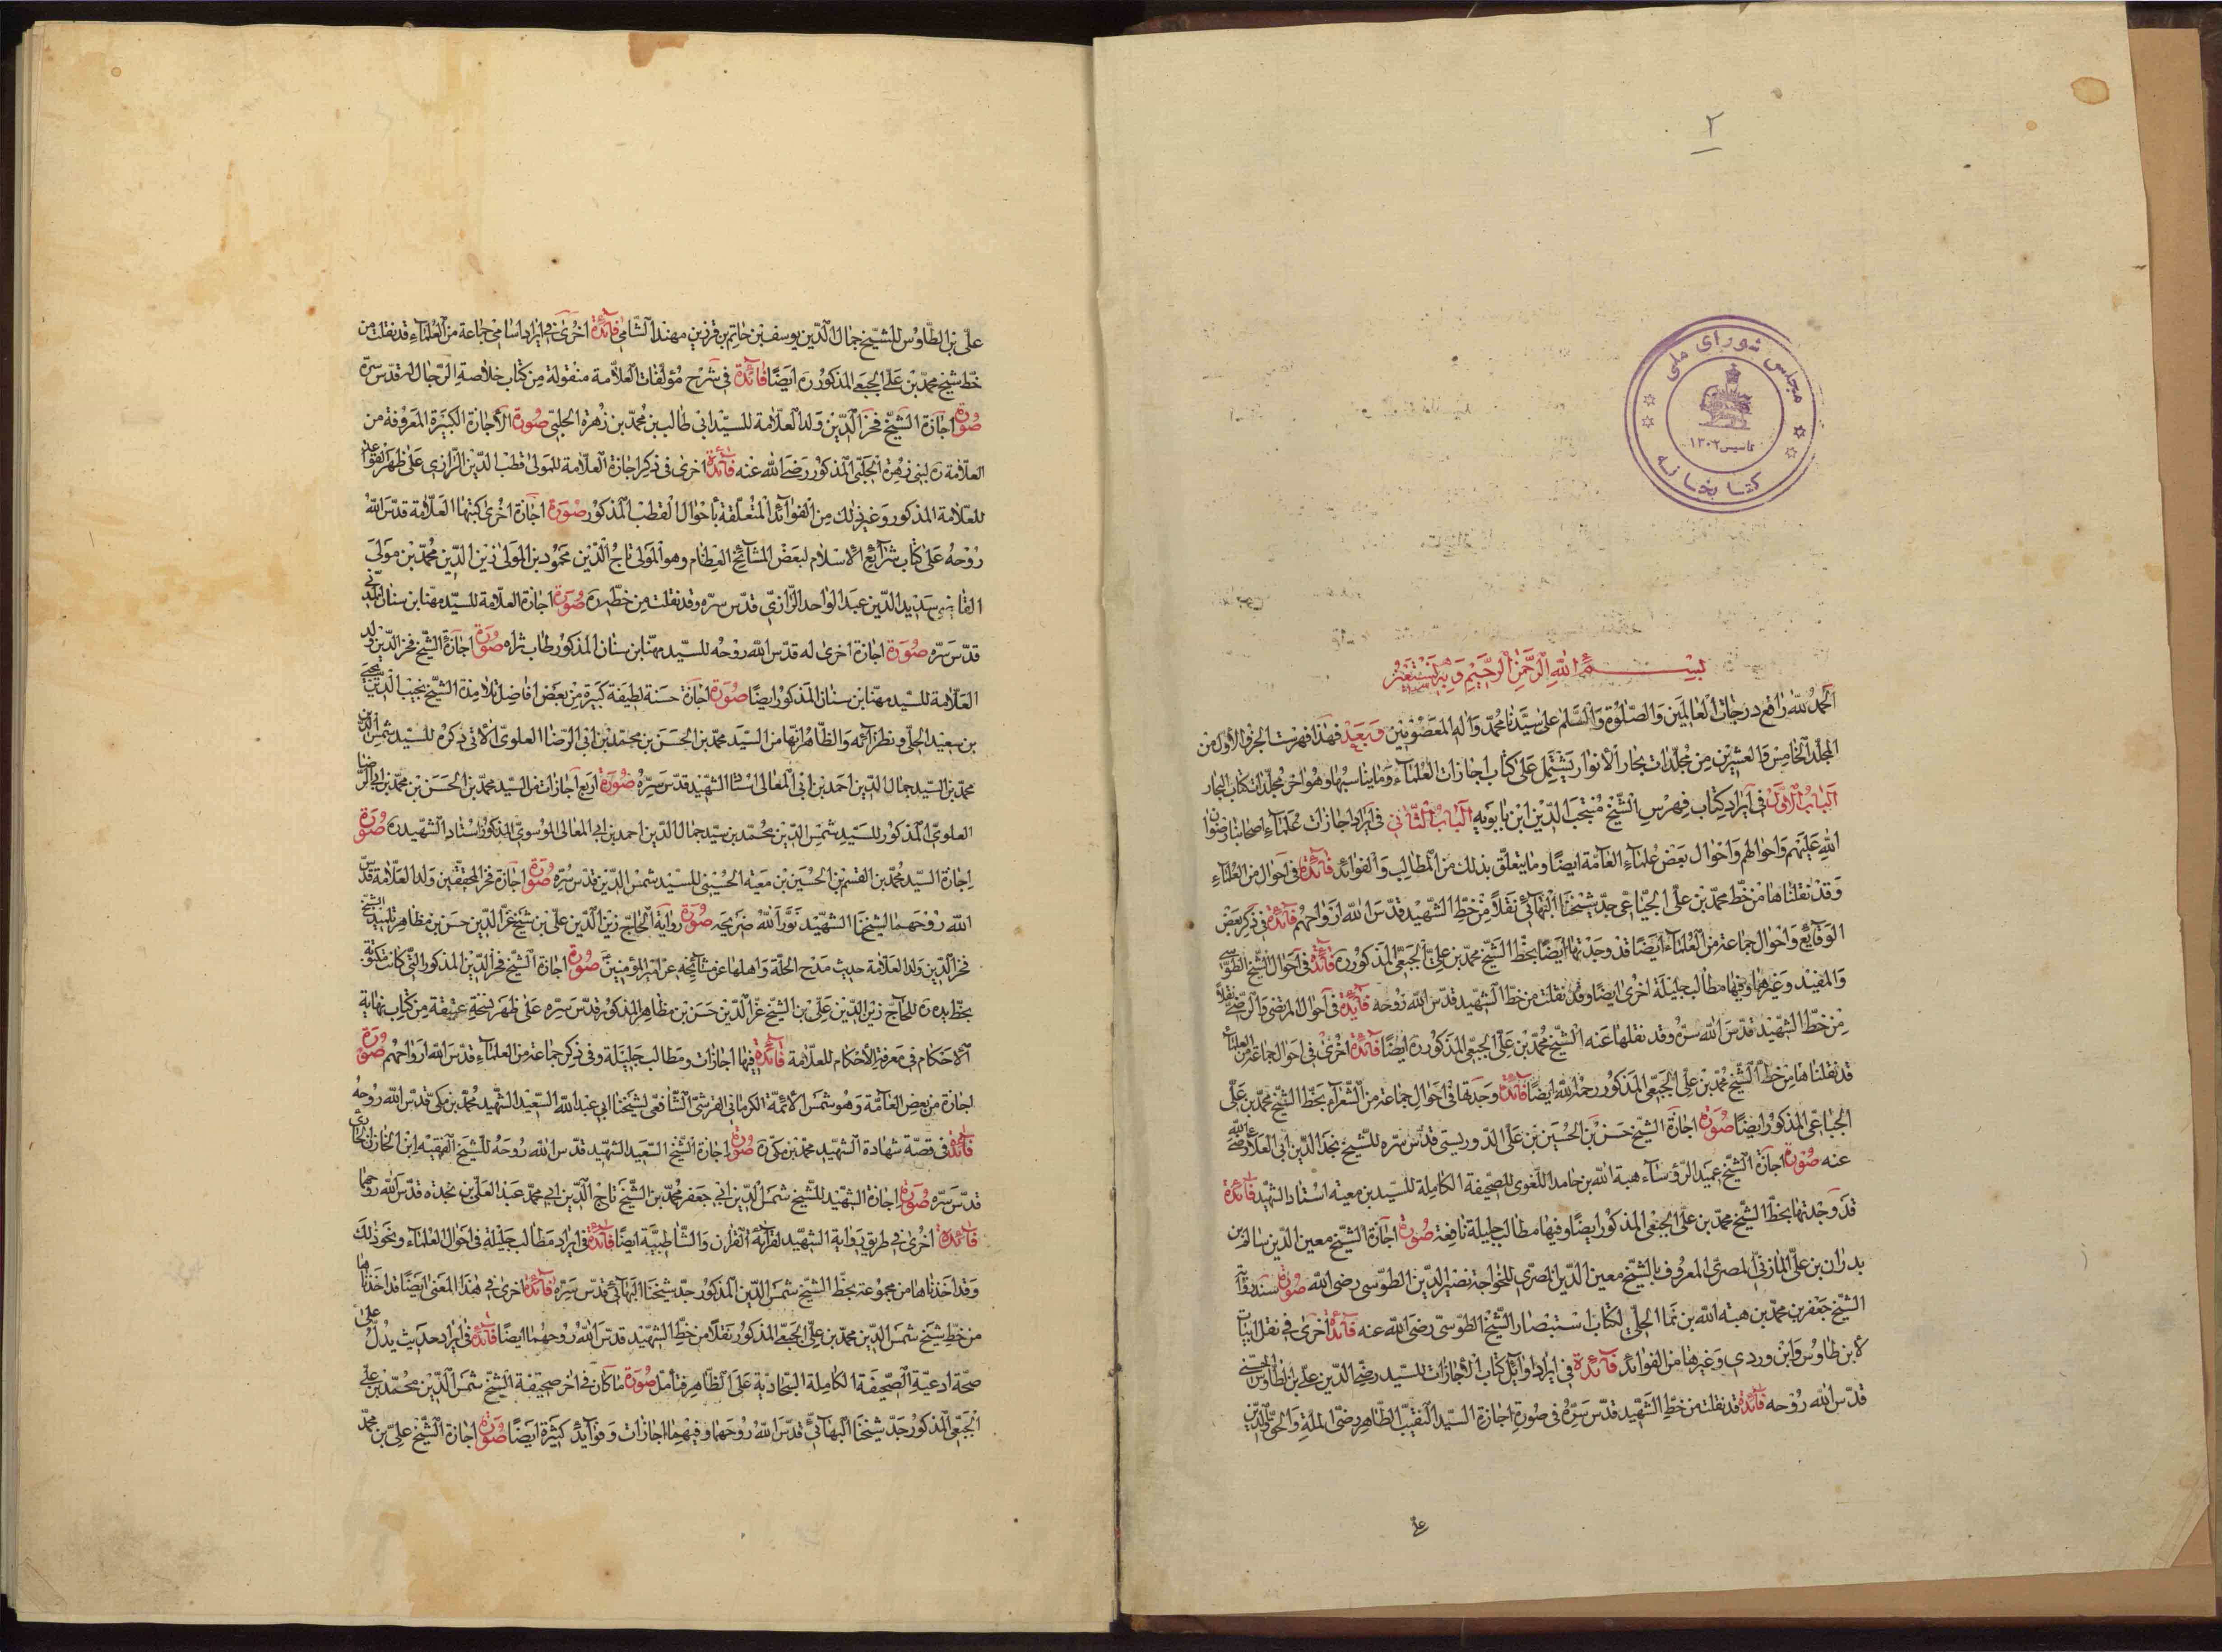 ٢
مجلس شورای ملی
تاسیس ۱۳۰۲
کتابخانه
بسم الله الرحمن الرحيم وبه نستعين
الحمد لله رافع درجات العالمين والصلوة والسلم على سيدنا محمد واله المعصومين وبعد فهذا فهرست الجزو الاول من
المجلد الخامس والعشرين من مجلدات بحار الأنوار يشتمل على كتاب اجازات العلماء وما يناسبها وهو اخر مجلدات كتاب البحار
الباب الاول في ايراد كتاب فهرس الشيخ منتجب الدين ابن بابويه الباب الثاني في ايراد اجازات علماء اصحابنا رضوان
الله عليهم واحوالهم واحوال بعض علماء العامة ايضا وما يتعلق بذلك من المطالب والفوائد فائدة في احوال من العلماء
وقد نقلناها من خط محمد بن علي الجباعي جد شيخنا البهائي نقلا من خط الشهيد قدس الله ارواحهم فائدة في ذكر بعض
الوقايع واحوال جماعة من العلماء ايضا قد وجدتها ايضا بخط الشيخ محمد بن علي الجبعي المذكور ره فائدة في احوال الشيخ الطوسي
والمفيد وغيرهما وفيها مطالب جليلة اخرى ايضا وقد نقلت من خط الشهيد قدس الله روحه فائدة في احوال المرتضى والرضي نقلا
من خط الشهيد قدس الله سره وقد نقلها عنه الشيخ محمد بن علي الجبعي المذكور ره ايضا فائدة اخرى في احوال جماعة من العلماء
قد نقلناها من خط الشيخ محمد بن علي الجبعي المذكور رحمه الله ايضا فائدة وجدتها في احوال جماعة من الشعراء بخط الشيخ محمد بن علي
الجباعي المذكور ايضا صورة اجازة الشيخ حسن بن الحسين بن علي الدوريستي قدس سره للشيخ مجد الدين ابي العلاء رضي الله
عنه صورة اجازة الشيخ عميد الرؤساء هبة الله بن حامد اللغوي للصحيفة الكاملة للسيد بن معية استاد الشهيد فائدة
قد وجدتها بخط الشيخ محمد بن علي الجبعي المذكور ايضا وفيها مطالب جليلة نافعة صورة اجازة الشيخ معين الدين سالم بن
بدران بن علي المازني المصري المعروف بالشيخ معين الدين المصري للخواجة نصير الدين الطوسي رضي الله صورة سند رواية
الشيخ جعفر بن محمد بن هبة الله بن نما الحلي لكتاب استبصار الشيخ الطوسي رضي الله عنه فائدة اخرى في نقل ابيات
لابن طاوس وابن وردي وغيرها من الفوائد فائدة في ايراد اوائل كتاب الاجازات للسيد رضي الدين علي بن الطاوس الحسني
قدس الله روحه فائدة قد نقلت من خط الشهيد قدس سره في صورة اجازة السيد النقيب الطاهر رضي الملة والحق والدين
علي بن الطاوس للشيخ جمال الدين يوسف بن حاتم بن فوز بن مهند الشامي فائدة اخرى في ايراد اسامي جماعة من العلماء قد نقلت من
خط شيخ محمد بن علي الجبعي المذكور ره ايضا فائدة في شرح مؤلفات العلامة منقولة من كتاب خلاصة الرجال له قدس سره
صورة اجازة الشيخ فخر الدين ولد العلامة للسيد ابي طالب بن محمد بن زهرة الحلبي صورة الاجازة الكبيرة المعروفة من
العلامة ره لبني زهرة الحلبي المذكور رضي الله عنه فائدة اخرى في ذكر اجازة العلامة للمولى قطب الدين الرازي على ظهر القواعد
للعلامة المذكور وغير ذلك من الفوائد المتعلقة بأحوال القطب المذكور صورة اجازة اخرى كتبها العلامة قدس الله
روحه على كتاب شرائع الاسلام لبعض المشائخ العظام وهو المولى تاج الدين محمود بن المولى زين الدين محمد بن مولى
القاضي سديد الدين عبد الواحد الرازي قدس سره وقد نقلت من خطه ره صورة اجازة العلامة للسيد مهنا بن سنان المدني
قدس سره صورة اجازة اخرى له قدس الله روحه للسيد مهنا بن سنان المذكور طاب ثراه صورة اجازة الشيخ فخر الدين ولد
العلامة للسيد مهنا بن سنان المذكور ايضا صورة اجازة حسنة لطيفة كبيرة من بعض افاضل تلامذة الشيخ نجيب الدين يحيى
بن سعيد الحلي ونظرائه والظاهر انها من السيد محمد بن الحسن بن محمد بن ابي الرضا العلوي الاتي ذكره للسيد شمس الدين
محمد بن السيد جمال الدين احمد بن ابي المعالي استاد الشهيد قدس سره صورة اربع اجازات من السيد محمد بن الحسن بن محمد بن ابي الرضا
العلوي المذكور للسيد شمس الدين محمد بن سيد جمال الدين احمد بن ابي المعالي الموسوي المذكور استاد الشهيد ره صورة
اجازة السيد محمد بن القسم بن الحسين بن معية الحسيني للسيد شمس الدين قدس سره صورة اجازة فخر المحققين ولد العلامة قدس
الله روحهما لشيخنا الشهيد نور الله ضريحه صورة رواية الحاج زين الدين علي بن شيخ عز الدين حسن بن مظاهر تلميذ الشيخ
فخر الدين ولد العلامة حديث مدح الحلة واهلها عن مشائخه عن امير المؤمنين صورة اجازة الشيخ فخر الدين المذكور التي كانت مكتوبة
بخط يده ره للحاج زين الدين علي بن الشيخ عز الدين حسن بن مظاهر المذكور قدس سره على ظهر نسخة عتيقة من كتاب نهاية
الاحكام في معرفة الأحكام للعلامة فائدة فيها اجازات ومطالب جليلة وفي ذكر جماعة من العلماء قدس الله ارواحهم صورة
اجازة من بعض العامة وهو شمس الأئمة الكرماني القرشي الشافعي لشيخنا ابي عبد الله السعيد الشهيد محمد بن مكي قدس الله روحه
فائدة في قصة شهادة الشهيد محمد بن مكي ره صورة اجازة الشيخ السعيد الشهيد قدس الله روحه للشيخ الفقيه ابن الخازن الحائري
قدس سره صورة اجازة الشهيد للشيخ شمس الدين ابي جعفر محمد بن الشيخ تاج الدين ابي محمد عبد العلي بن نجدة قدس الله روحهما
فائدة اخرى في طريق رواية الشهيد لقرائة القرآن والشاطبية ايضا فائدة في ايراد مطالب جليلة في احوال العلماء ونحو ذلك
وقد اخذناها من مجموعة بخط الشيخ شمس الدين المذكور جد شيخنا البهائي قدس سره فائدة اخرى في هذا المعنى ايضا قد اخذناها
من خط شيخ شمس الدين محمد بن علي الجبعي المذكور نقلا من خط الشهيد قدس الله روحهما ايضا فائدة في ايراد حديث يدل على
صحة ادعية الصحيفة الكاملة السجادية على الظاهر فتأمل صورة ما كان في اخر صحيفة الشيخ شمس الدين محمد بن علي
الجبعي المذكور جد شيخنا البهائي قدس الله روحهما وفيهما اجازات وفوايد كثيرة ايضا صورة اجازة الشيخ علي بن محمد